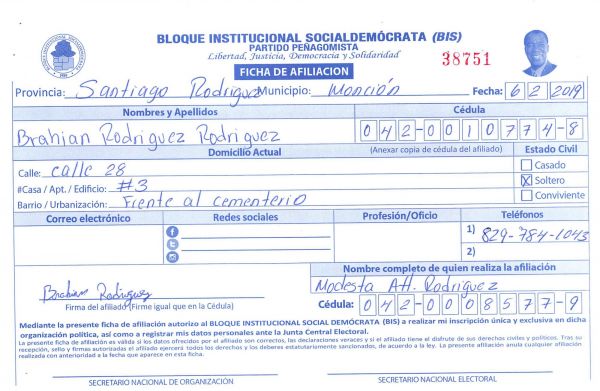 BLOQUE INSTITUCIONAL SOCIALDEMÓCRATA (BIS)
PARTIDO PEÑAGOMISTA
Libertad, Justicia, Democracia y Solidaridad
38751
FICHA DE AFILIACION
Provincia: Santiago Rodriguez Municipio: Monción Fecha: 6/2/2019
Nombres y Apellidos Cédula
Brahian Rodriguez Rodriguez 042-0010774-8
Domicilio Actual (Anexar copia de cédula del afiliado) Estado Civil
Calle: calle 28 Casado
#Casa / Apt. / Edificio: #3 X Soltero
Barrio / Urbanización: Frente al cementerio Conviviente
Correo electrónico Redes sociales Profesión/Oficio Teléfonos
1) 829-784-1043
2)
Nombre completo de quien realiza la afiliación
Brahian Rodriguez Modesta Alt. Rodriguez
Firma del afiliado (Firme igual que en la Cédula) Cédula: 042-0008577-9
Mediante la presente ficha de afiliación autorizo al BLOQUE INSTITUCIONAL SOCIAL DEMÓCRATA (BIS) a realizar mi inscripción única y exclusiva en dicha
organización política, así como a registrar mis datos personales ante la Junta Central Electoral.
La presente ficha de afiliación es válida si los datos ofrecidos por el afiliado son correctos, las declaraciones veraces y si el afiliado tiene el disfrute de sus derechos civiles y políticos. Tras su
recepción, sello y firmas autorizadas el afiliado ejercerá todos los derechos y los deberes estatutariamente sancionados, de acuerdo a la ley. La presente afiliación anula cualquier afiliación
realizada con anterioridad a la fecha que aparece en esta ficha.
SECRETARIO NACIONAL DE ORGANIZACIÓN SECRETARIO NACIONAL ELECTORAL